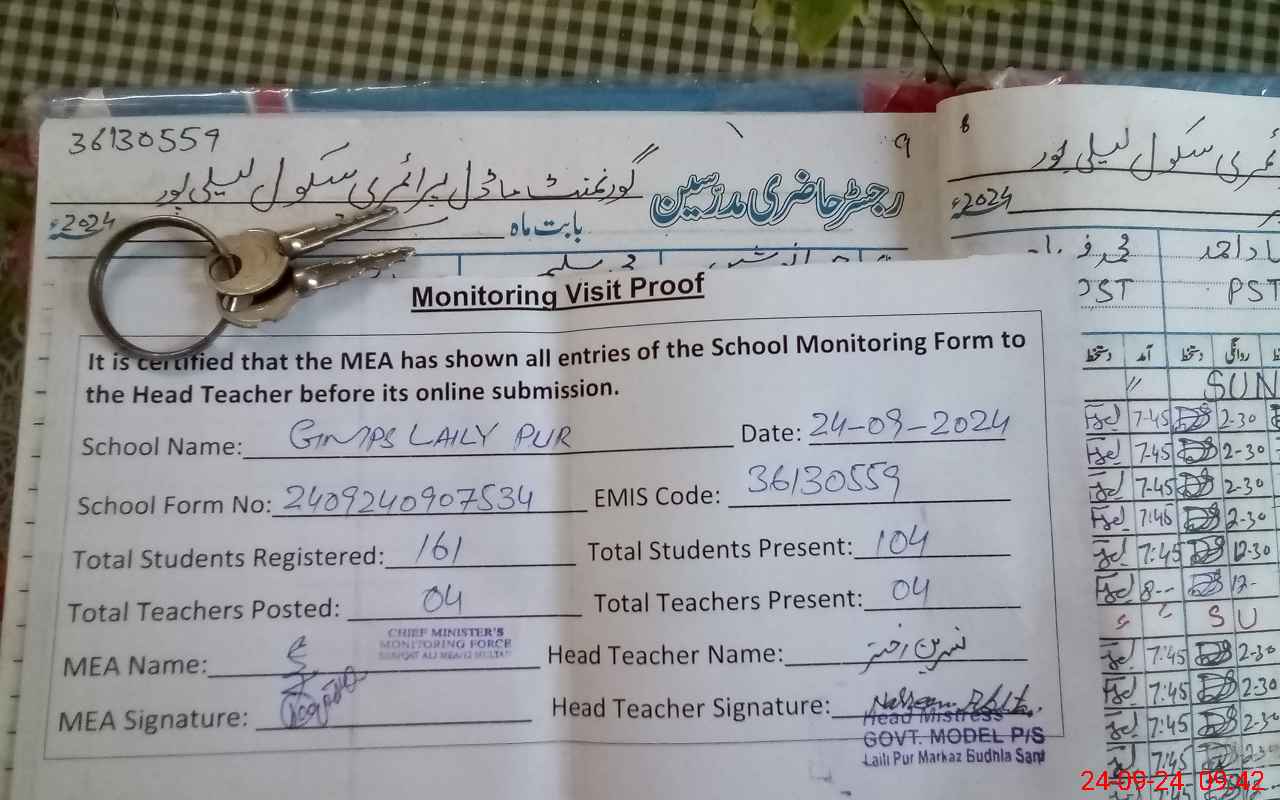 36130559
9
گورنمنٹ ماڈل پرائمری سکول لیلی پور
رجسٹر حاضری مدرسین
2024ء
بابت ماہ
8
سکول لیلی پور
2024ء
PST
دستخط آمد دستخط روانگی
SUN
7-45 2-30
7-45 2-30
7-45 2-30
7:45 2-30
7:45 12-30
8--
S U
7:45 2-30
7:45 2-30
7:45 2-30
7:45
Monitoring Visit Proof
It is certified that the MEA has shown all entries of the School Monitoring Form to
the Head Teacher before its online submission.
School Name: GMPS LAILY PUR Date: 24-09-2024
School Form No: 2409240907534 EMIS Code: 36130559
Total Students Registered: 161 Total Students Present: 104
Total Teachers Posted: 04 Total Teachers Present: 04
CHIEF MINISTER'S
MONITORING FORCE
MEA Name: Head Teacher Name: نسرین اختر
MEA Signature: Head Teacher Signature:
Head Mistress
GOVT. MODEL P/S
Laili Pur Markaz Budhla Sant
24-09-24 09:42